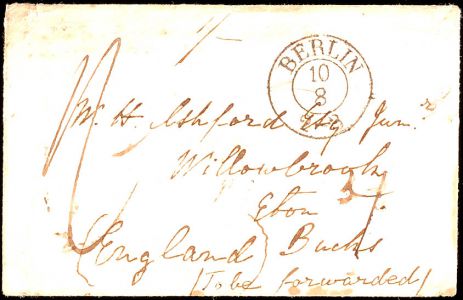 BERLIN
10
8
W. H. Ashford Esq. Junr
Willowbrook
Eton
England Bucks
(To be forwarded)